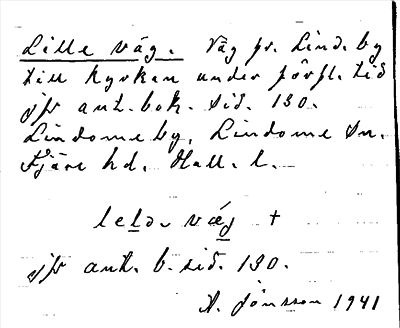 Lille väg. Väg fr. Lind. by
till Kyrkan under förfl. tid
jfr ant. bok. sid. 130.
Lindome by, Lindome sn.
Fjäre hd. Hall. l.
lela väg +
jfr ant. b. sid. 130.
A. Jönsson 1941